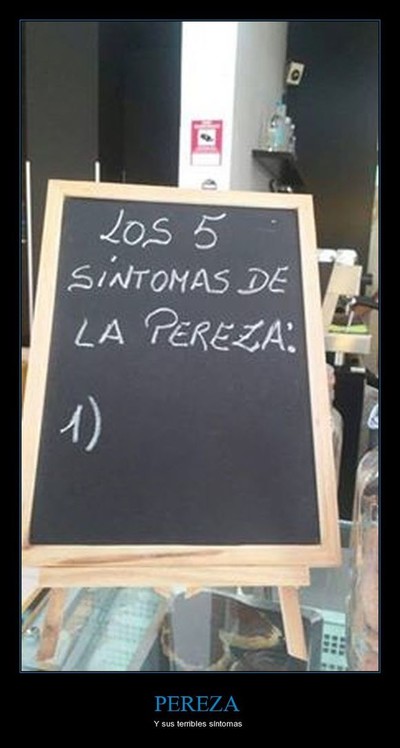 LOS 5
SÍNTOMAS DE
LA PEREZA:
1)
PEREZA
Y sus terribles síntomas